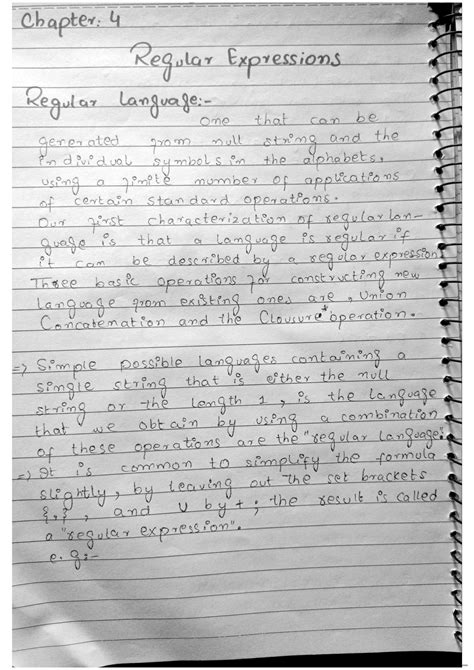 Chapter: 4
Regular Expressions
Regular Language:-
One that can be
generated from null string and the
individual symbols in the alphabets,
using a finite number of applications
of certain standard operations.
Our first characterization of regular lan-
guage is that a language is regular if
it can be described by a regular expression
Three basic operations for constructing new
language from existing ones are, Union
Concatenation and the Clousure* operation.
=> Simple possible languages containing a
single string that is either the null
string or the length 1, is the language
that we obtain by using a combination
of these operations are the "regular language".
=> It is common to simplify the formula
slightly, by leaving out the set brackets
{,}, and U by +; the result is called
a "regular expression".
e.g:-